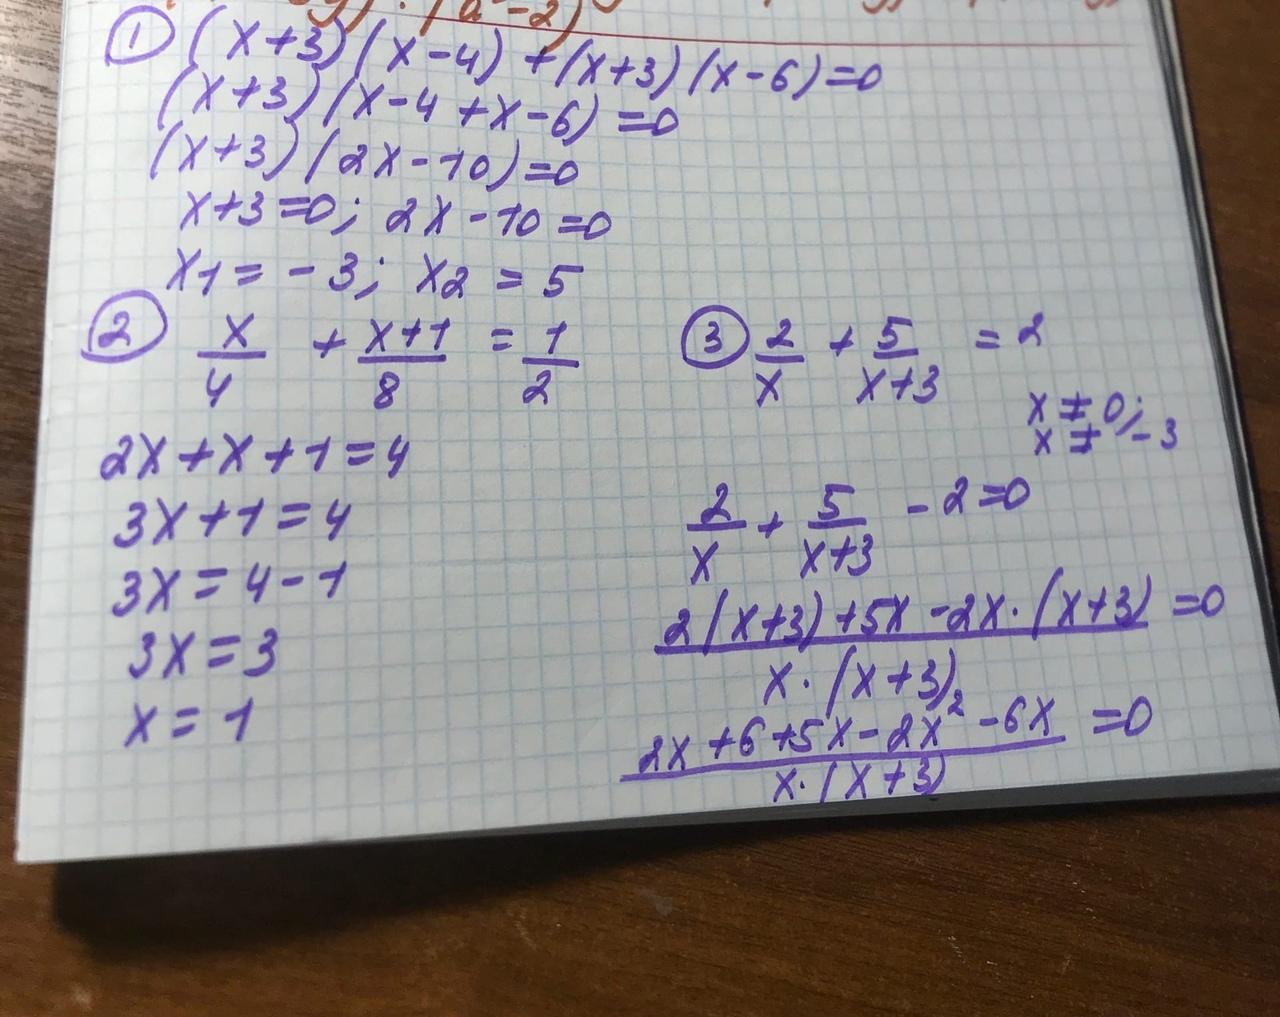 (a-2)
① (x+3)(x-4)+(x+3)(x-6)=0
(x+3)(x-4+x-6)=0
(x+3)(2x-10)=0
x+3=0; 2x-10=0
x1=-3; x2=5
② x/4 + x+1/8 = 1/2
2x+x+1=4
3x+1=4
3x=4-1
3x=3
x=1
③ 2/x + 5/x+3 = 2
x≠0;
x≠-3
2/x + 5/x+3 -2=0
2(x+3)+5x-2x·(x+3)/x·(x+3) =0
2x+6+5x-2x²-6x/x·(x+3) =0